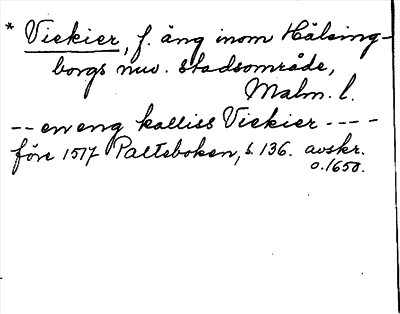 * Viekier, f. äng inom Hälsing-
borgs nuv. stadsområde,
Malm. l.
-- en eng kalliss Viekier ----
före 1517 Palteboken, s. 136. avskr.
o. 1650.